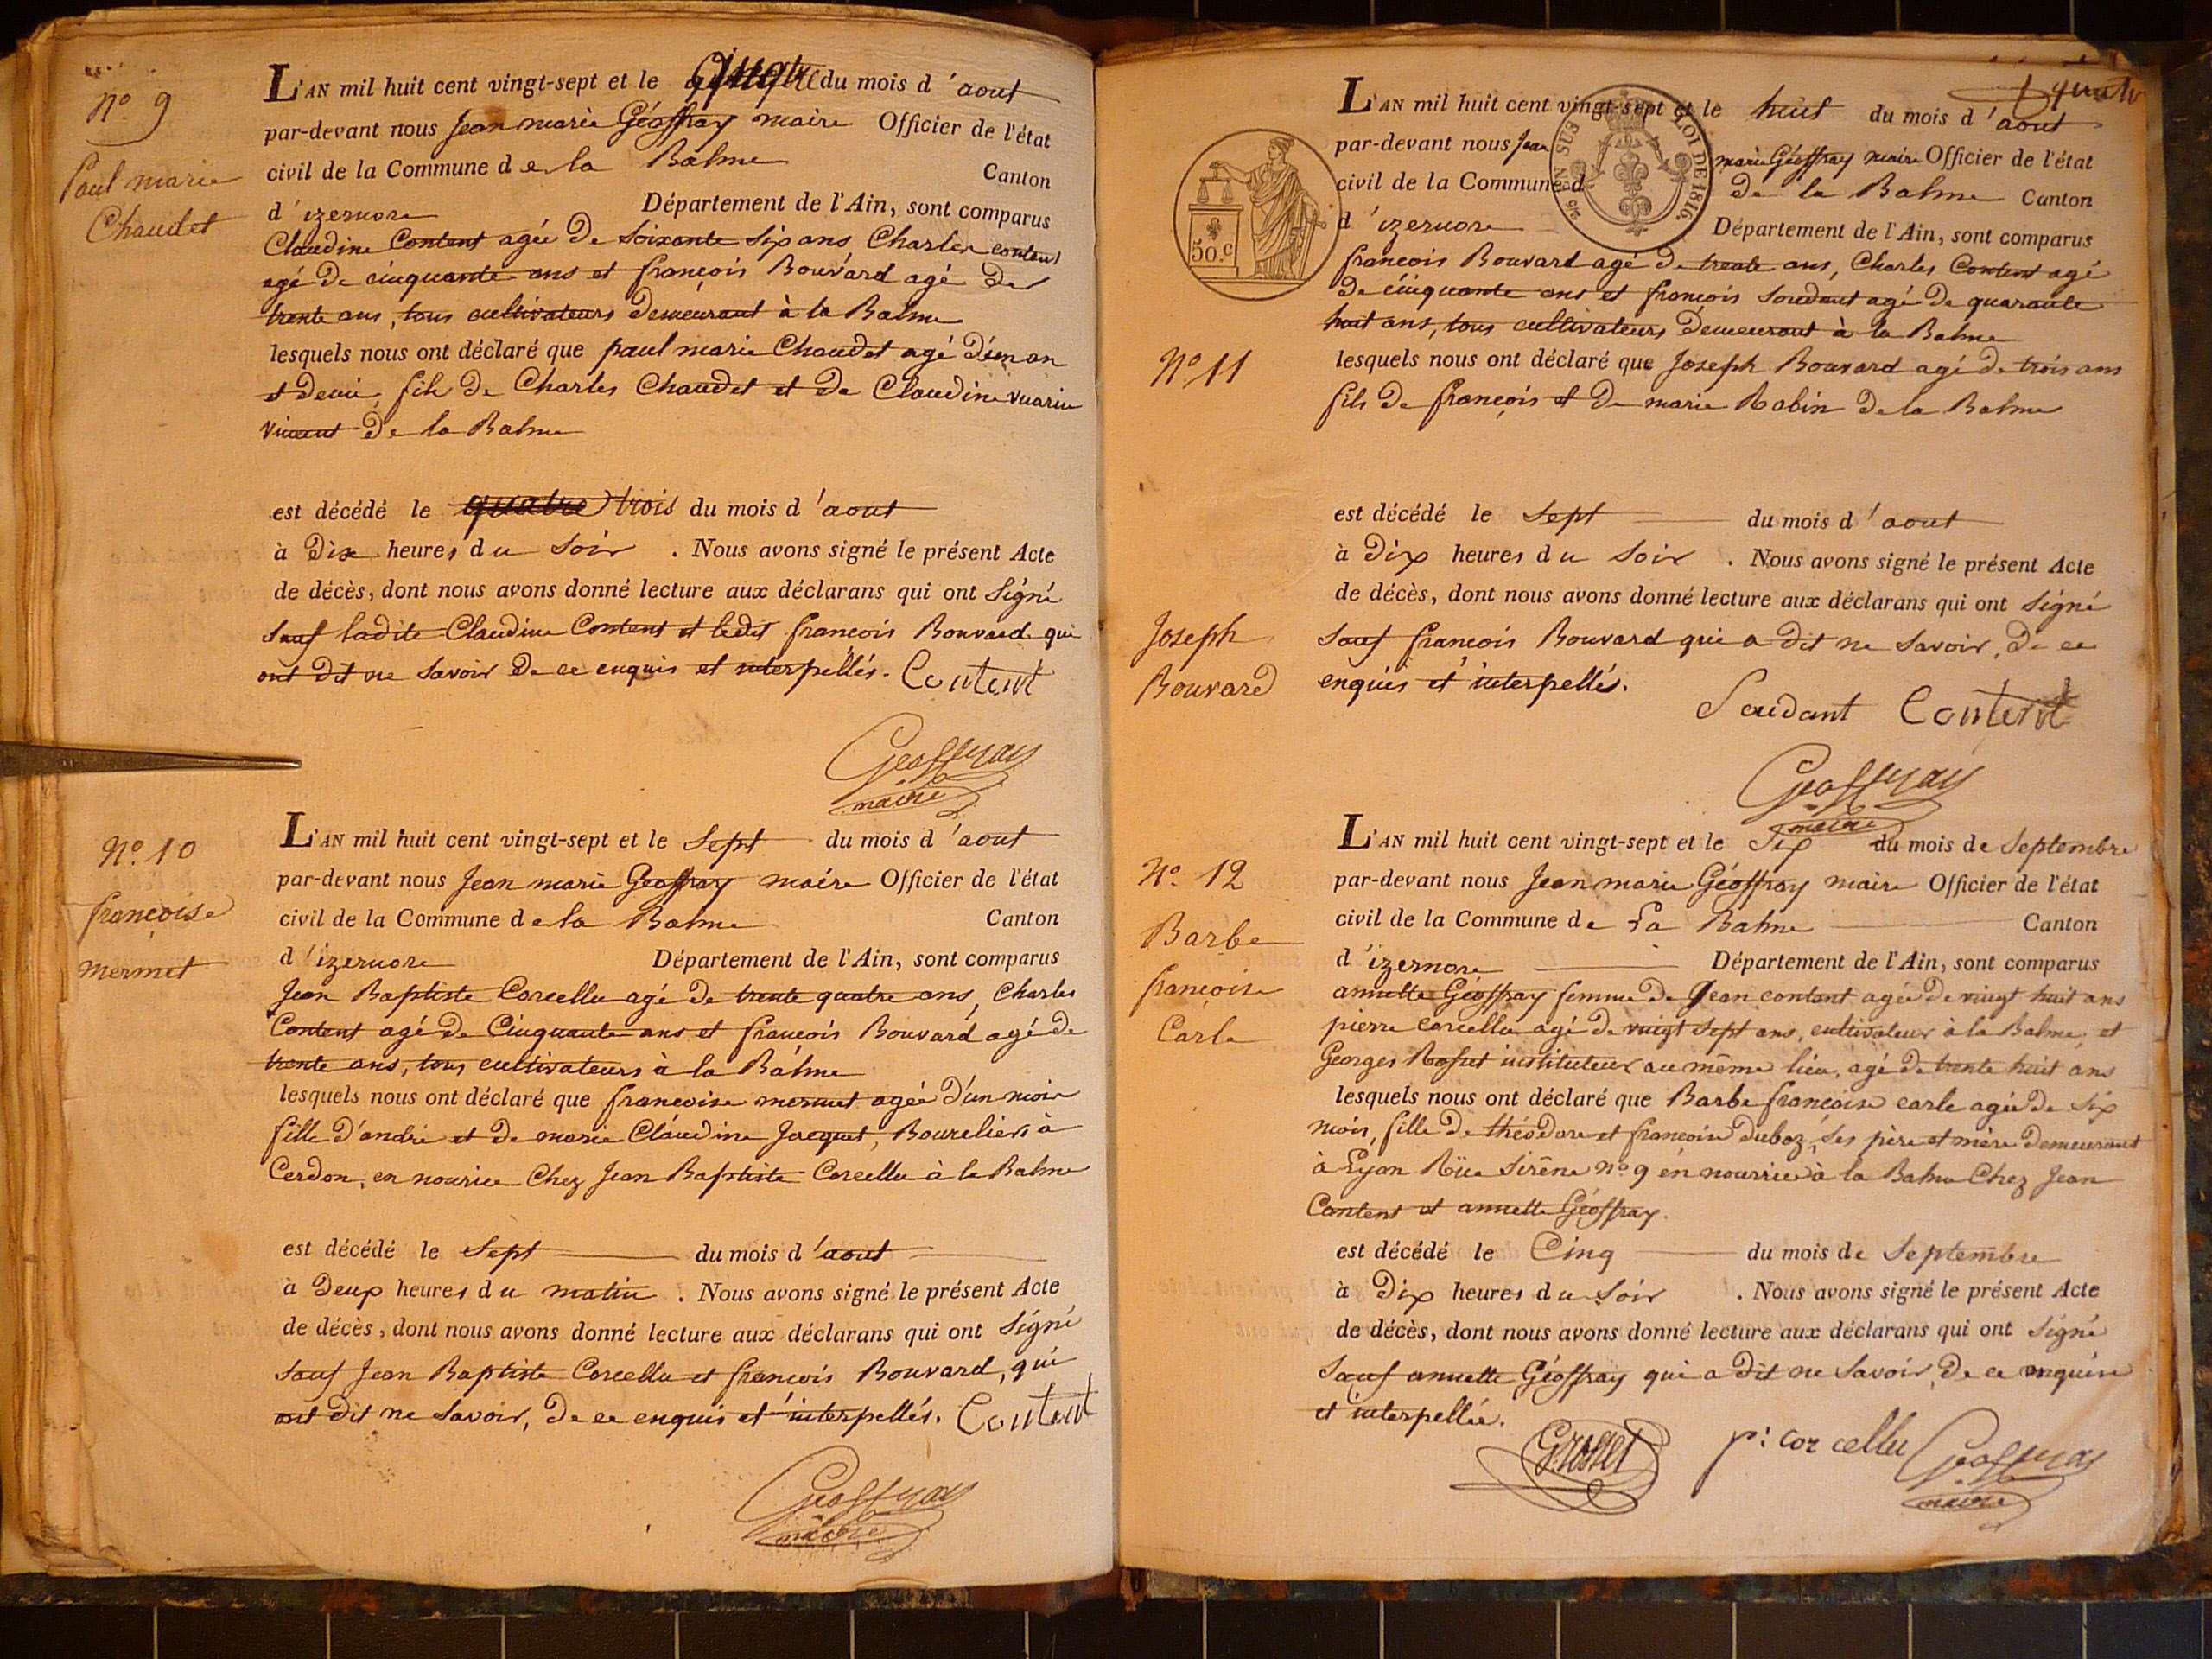 N.º 9
Paul marie
Chaudet
L'AN mil huit cent vingt-sept et le quatre du mois d'aout
par-devant nous Jean marie Géoffray maire Officier de l'état
civil de la Commune de la Balme Canton
d'izernore Département de l'Ain, sont comparus
Claudine Content agée De Soixante Six ans Charles content
agé De cinquante ans et françois Bouvard agé De
trente ans, tous cultivateurs Demeurant à la Balme
lesquels nous ont déclaré que paul marie Chaudet agé D'un an
et Demi, fils De Charles Chaudet et De Claudine vuarin
vincent De la Balme
est décédé le quatre trois du mois d'aout
à Dix heures du Soir . Nous avons signé le présent Acte
de décès, dont nous avons donné lecture aux déclarans qui ont Signé
Sauf ladite Claudine Content et ledit françois Bouvard qui
ont Dit ne Savoir De ce enquis et interpellés. Content
Geoffray
maire
N.º 10
françoise
mermet
L'AN mil huit cent vingt-sept et le Sept du mois d'aout
par-devant nous Jean marie Geoffray maire Officier de l'état
civil de la Commune de la Balme Canton
d'izernore Département de l'Ain, sont comparus
Jean Baptiste Corcellu agé De trente quatre ans, Charles
Content agé De Cinquante ans et françois Bouvard agé De
trente ans, tous cultivateurs à la Balme
lesquels nous ont déclaré que françoise mermet agée D'un mois
fille D'andré et De marie Claudine Jacquet, Boureliers à
Cerdon, en nourice Chez Jean Baptiste Corcellu à la Balme
est décédé le Sept du mois d'aout
à Deux heures du matin . Nous avons signé le présent Acte
de décès, dont nous avons donné lecture aux déclarans qui ont Signé
Sauf Jean Baptiste Corcellu et françois Bouvard, qui
ont Dit ne Savoir, De ce enquis et interpellés. Content
Geoffray
maire
L'AN mil huit cent vingt-sept et le huit du mois d'aout
par-devant nous Jean marie Géoffray maire Officier de l'état
civil de la Commune d De la Balme Canton
d'izernore Département de l'Ain, sont comparus
LOI DE 1816.
50.c
françois Bouvard agé De trente ans, Charles Content agé
De cinquante ans et françois Soudant agé De quarante
huit ans, tous cultivateurs Demeurant à la Balme
N.º 11
lesquels nous ont déclaré que Joseph Bouvard agé De trois ans
fils De françois et De marie Robin De la Balme
est décédé le Sept du mois d'aout
à Dix heures du Soir . Nous avons signé le présent Acte
de décès, dont nous avons donné lecture aux déclarans qui ont Signé
Joseph
Bouvard
Sauf françois Bouvard qui a Dit ne Savoir, De ce
enquis et interpellés.
Soudant Content
Geoffray
maire
N.º 12
Barbe
françoise
Carle
L'AN mil huit cent vingt-sept et le Six du mois de Septembre
par-devant nous Jean marie Géoffray maire Officier de l'état
civil de la Commune de La Balme Canton
d'izernore Département de l'Ain, sont comparus
annette Géoffray femme De Jean content agée De vingt huit ans
pierre corcellu agé De vingt Sept ans, cultivateur à la Balme, et
Georges Rosset instituteur au même lieu, agé De trente huit ans
lesquels nous ont déclaré que Barbe françoise carle agée De Six
mois, fille De théodore et françoise Duboz, Ses père et mère Demeurant
à Lyon Rüe Sirêne n.º 9 en nourrice à la Balme Chez Jean
Content et annette Géoffray.
est décédé le Cinq du mois de Septembre
à Dix heures du Soir . Nous avons signé le présent Acte
de décès, dont nous avons donné lecture aux déclarans qui ont Signé
Sauf annette Géoffray qui a Dit ne Savoir, De ce enquise
et interpellée.
G. Rosset p: corcellu Geoffray
maire